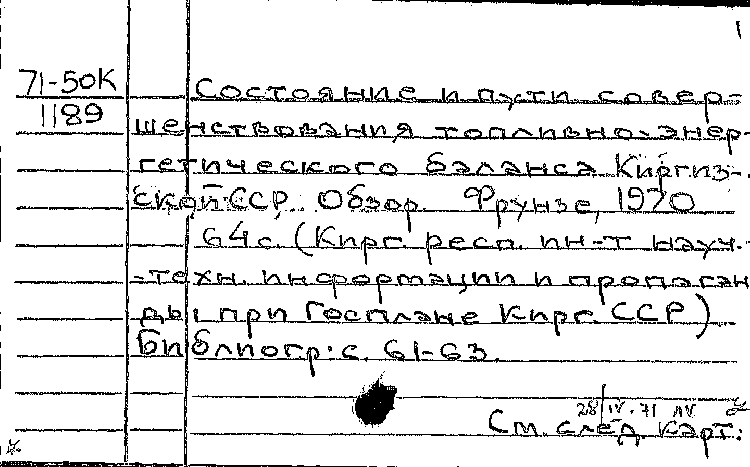 1
71-50К
1189
Состояние и пути совер-
шенствования топливно-энер-
гетического баланса Киргиз-
ской ССР. Обзор. Фрунзе, 1970
64 с. (Кирг. респ. ин-т науч.-
-техн. информации и пропаган
ды при Госплане Кирг. ССР)
Библиогр: с. 61-63.
28/IV.71
См. след. карт: